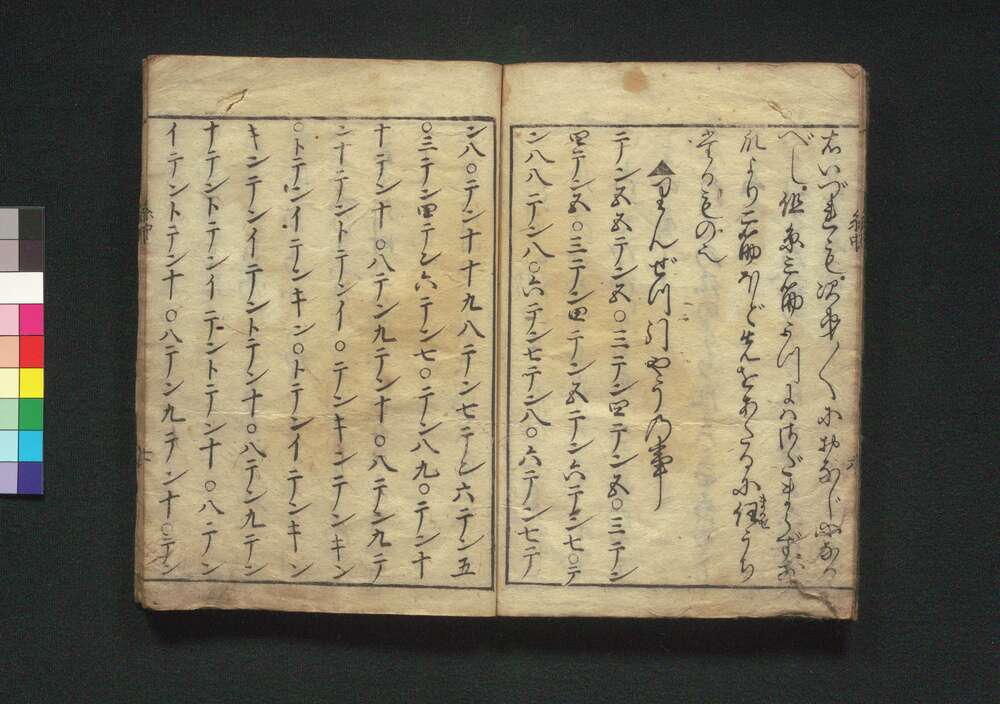 右いづれも。次第〱におなじ心なる
べし。但糸三筋
より二筋ほど先を
▲りんぜつ引やうの事
二テン五五テン五〇三テン四テン五〇三テン
四テン五〇三テン四テン五テン六テン七〇テ
ン八八テン八〇六テン七テン八〇六テン七テ
ン八〇テン十十九八テン七テン六テン五
〇三テン四テン六テン七〇テン八九〇テン十
十テン十〇八テン九テン十〇八テン九テ
ン十テントテンイ〇テンキンテンキン
〇トテンイテンキン〇トテンイテンキン
キンテンイテントテン十〇八テン九テン
十テントテンイテントテン十〇八テン
イテントテン十〇八テン九テン十〇テン